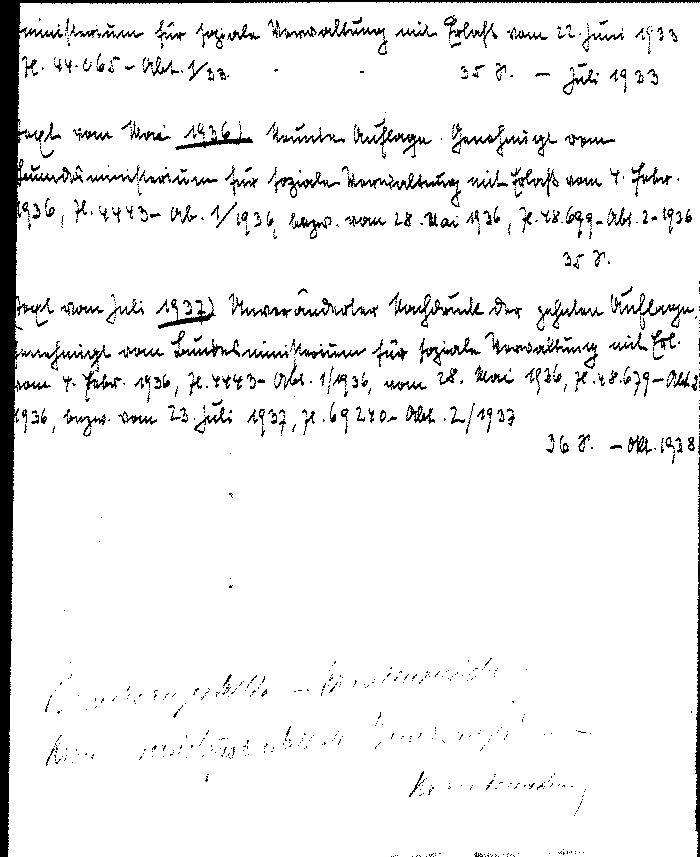 ministerium für soziale Verwaltung mit Erlaß vom 22. Juni 1933
Zl. 44.065 - Abt. 1/33. 35 S. - Juli 1933
Text vom Mai 1936) Neunte Auflage. Genehmigt vom
Bundesministerium für soziale Verwaltung mit Erlaß vom 4. Febr.
1936, Zl. 4443 - Ab. 1/1936, bezw. vom 28. Mai 1936, Zl. 48.699 - Abt. 2 - 1936
35 S.
Text vom Juli 1937) Unveränderter Nachdruck der zehnten Auflage,
genehmigt vom Bundesministerium für soziale Verwaltung mit Erl.
vom 4. Febr. 1936, Zl. 4443 - Abt. 1/1936, vom 28. Mai 1936, Zl. 48.679 - Abt. 2
1936, bezw. vom 23. Juli 1937, Zl. 69240 - Abt. 2/1937
36 S. - Okt. 1938